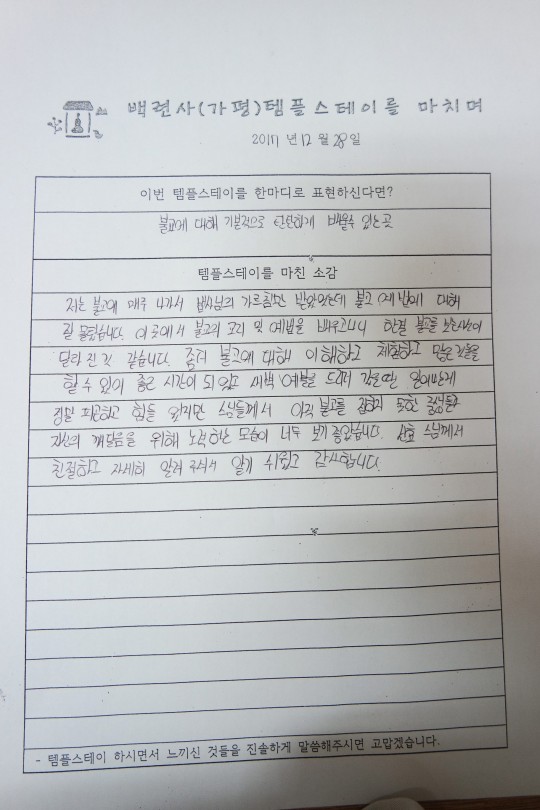 백련사(가평)템플스테이를 마치며
2017 년 12 월 28 일
이번 템플스테이를 한마디로 표현하신다면?
불교에 대해 기본적으로 탄탄하게 배울수 있는 곳
템플스테이를 마친 소감
저는 불교에 매주 나가서 법사님의 가르침만 받았었는데 불교 예법에 대해
잘 몰랐습니다. 이 곳에서 불교의 교리 및 예법을 배우고나니 한결 불교를 보는시선이
달라진 것 같습니다. 좀더 불교에 대해 이해하고 체험하고 많은것들을
할 수 있어 좋은 시간이 되었고 새벽 예불을 드려서 일어난게
정말 피곤하고 힘들 었지만 스님들께서 아직 불교를 접하지 못한 중생들과
자신의 깨달음을 위해 노력하는 모습이 너무 보기 좋았습니다. 스님께서
친절하고 자세히 알려 주셔서 알기 쉬웠고 감사합니다.
- 템플스테이 하시면서 느끼신 것들을 진솔하게 말씀해주시면 고맙겠습니다.